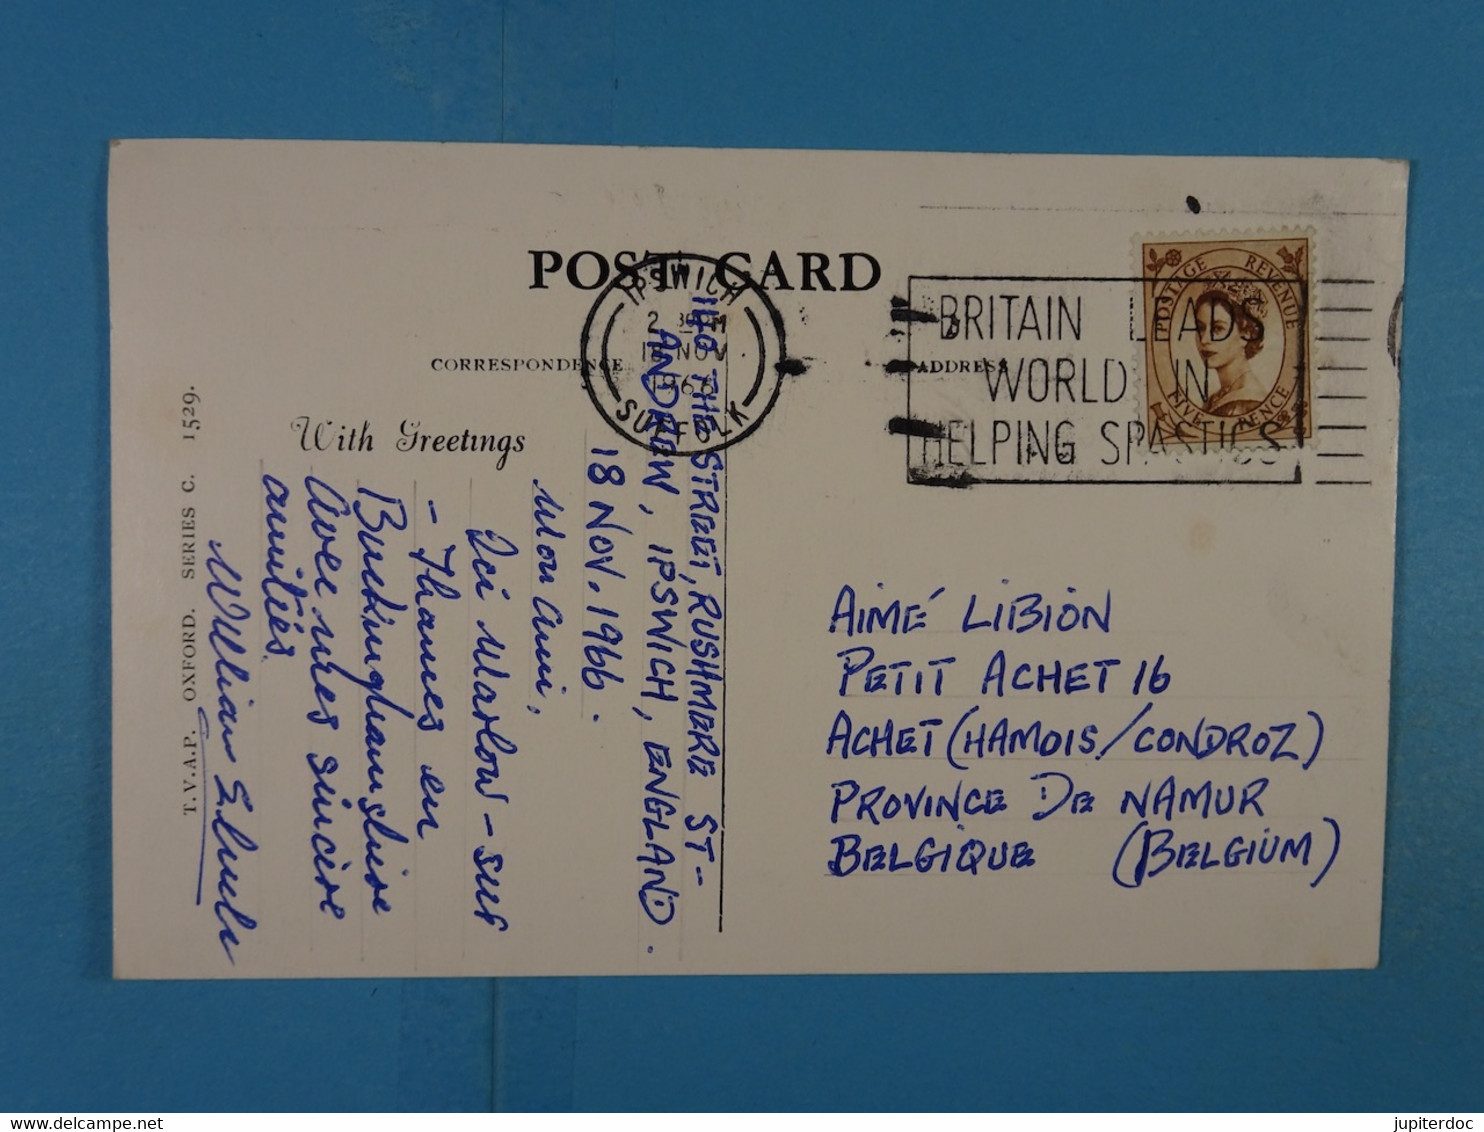 POST CARD
CORRESPONDENCE
ADDRESS
With Greetings
T.V.A.P. OXFORD. SERIES C. 1529.
IPSWICH
NOV
1966
SUFFOLK
BRITAIN LEADS
WORLD IN
HELPING SPASTICS
POSTAGE REVENUE
FIVE PENCE
140 THE STREET, RUSHMERE ST-
ANDREW, IPSWICH, ENGLAND.
18 NOV. 1966.
Mon Ami,
Ici Marlow-sur
-Thames en
Buckinghamshire
Avec mes sincère
amitiés.
William
AIMÉ LIBION
PETIT ACHET 16
ACHET (HAMOIS/CONDROZ)
PROVINCE DE NAMUR
BELGIQUE (BELGIUM)
jupiterdoc